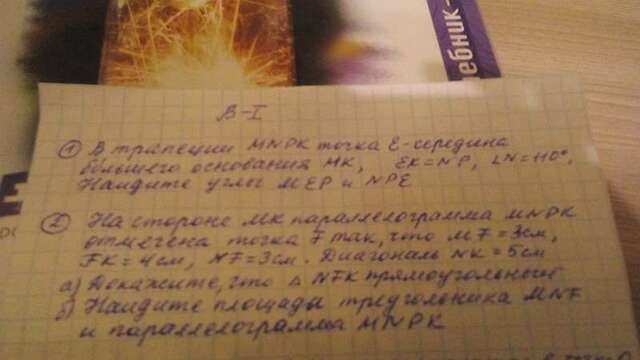 ебник-
В-I
① В трапеции MNPK точка E-середина
большего основания MK, EK=NP, ∠N=110°.
Найдите углы MEP и NPE
② На стороне MK параллелограмма MNPK
отмечена точка F так, что MF=3см,
FK=4см, NF=3см. Диагональ NK=5см
а) Докажите, что △ NFK прямоугольный
б) Найдите площади треугольника MNF
и параллелограмма MNPK